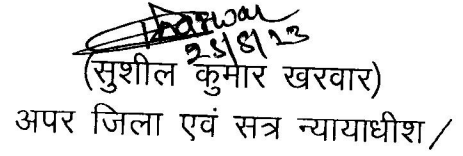 Kharwar
25/8/23
(सुशील कुमार खरवार)
अपर जिला एवं सत्र न्यायाधीश /